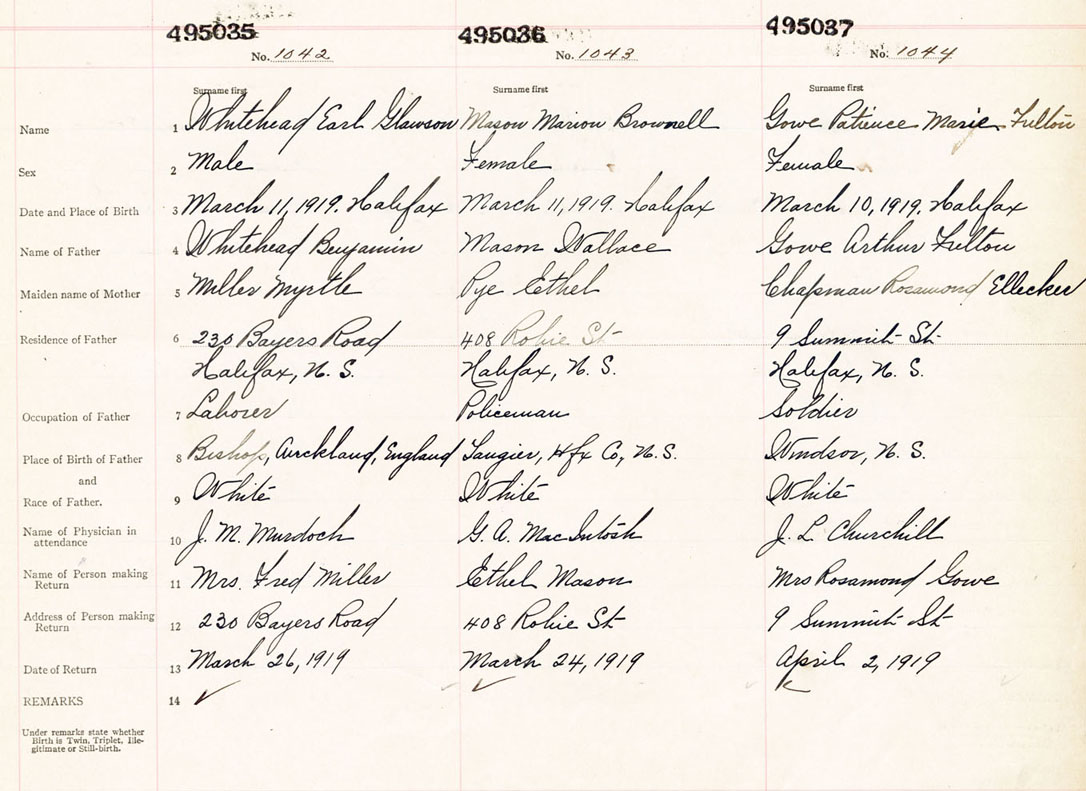 495035 495036 495037
No. 1042 No. 1043 No. 1044
Surname first Surname first Surname first
Name 1 Whitehead Earl Glawson Mason Marion Brownell Gowe Patience Marie Fulton
Sex 2 Male Female Female
Date and Place of Birth 3 March 11, 1919. Halifax March 11, 1919. Halifax March 10, 1919. Halifax
Name of Father 4 Whitehead Benjamin Mason Wallace Gowe Arthur Fulton
Maiden name of Mother 5 Miller Myrtle Pye Ethel Chapman Rosamond Ellecker
Residence of Father 6 230 Bayers Road 408 Robie St 9 Summit St.
Halifax, N. S. Halifax, N. S. Halifax, N. S.
Occupation of Father 7 Laborer Policeman Soldier
Place of Birth of Father 8 Bishop, Aurckland, England Tangier, Hfx Co, N.S. Windsor, N. S.
and
Race of Father. 9 White White White
Name of Physician in
attendance 10 J. M. Murdoch G. A. MacIntosh J. L Churchill
Name of Person making
Return 11 Mrs. Fred Miller Ethel Mason Mrs Rosamond Gowe
Address of Person making
Return 12 230 Bayers Road 408 Robie St 9 Summit St
Date of Return 13 March 26, 1919 March 24, 1919 April 2, 1919
REMARKS 14 ✓ ✓ ✓
Under remarks state whether
Birth is Twin, Triplet, Ille-
gitimate or Still-birth.